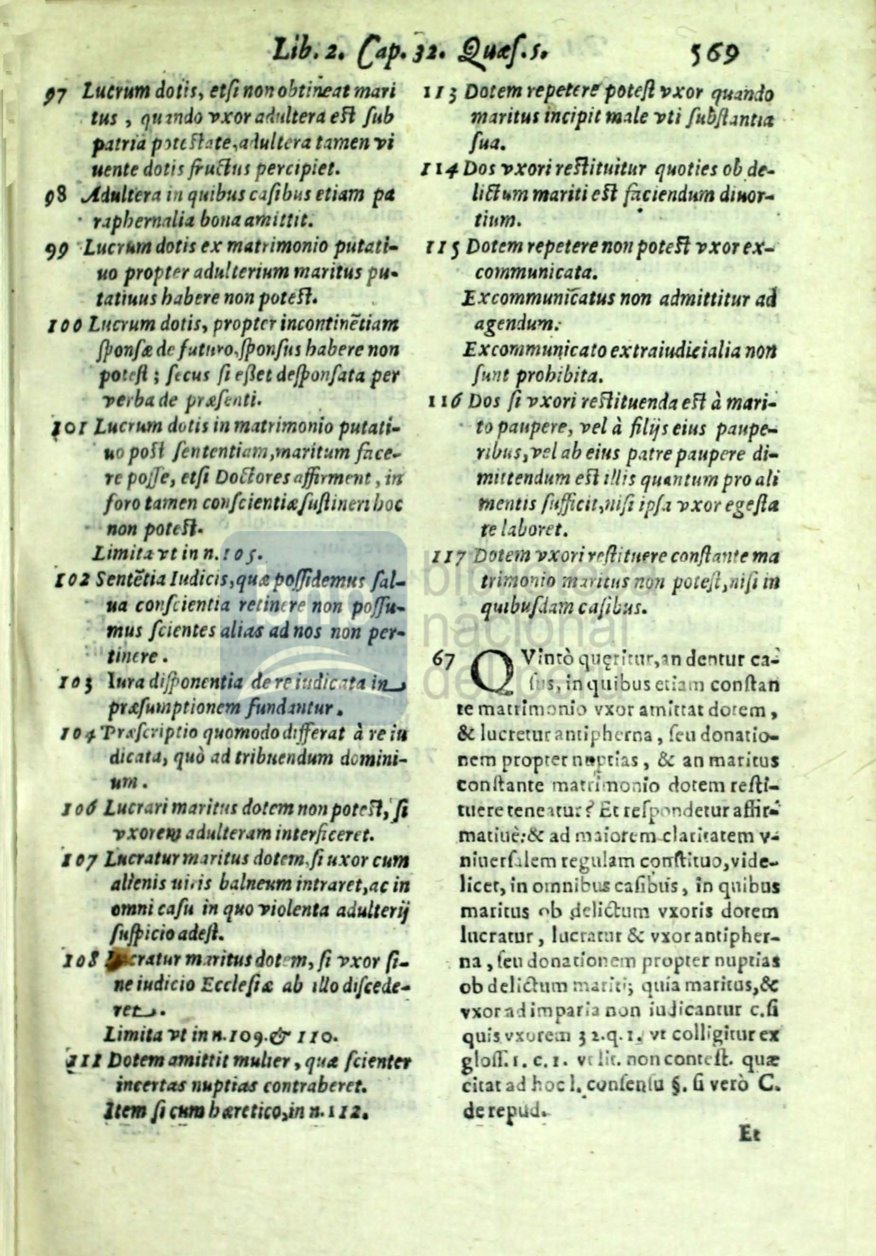 Lib. 2. Cap. 32. Quæſ. 5. 569
97 Lucrum dotis, etſi non obtineat mari
tus, quando vxor adultera eſt ſub
patria poteſtate, adultera tamen vi
uente dotis fructus percipiet.
98 Adultera in quibus caſibus etiam pa
raphernalia bona amittit.
99 Lucrum dotis ex matrimonio putati-
uo propter adulterium maritus pu-
tatiuus habere non poteſt.
100 Lucrum dotis, propter incontinētiam
ſponſæ de futuro, ſponſus habere non
poteſt; ſecus ſi eſſet deſponſata per
verba de præſenti.
101 Lucrum dotis in matrimonio putati-
uo poſt ſententiam, maritum face-
re poſſe, etſi Doctores affirment, in
foro tamen conſcientiæ ſuſtineri hoc
non poteſt.
Limita vt in n. 105.
102 Sentētia Iudicis, quæ poſſidemus ſal-
ua conſcientia retinere non poſſu-
mus ſcientes alias ad nos non per-
tinere.
103 Iura diſponentia de re iudicata in
præſumptionem fundantur.
104 Præſcriptio quomodo differat à re iu
dicata, quò ad tribuendum domini-
um.
106 Lucrari maritus dotem non poteſt, ſi
vxorem adulteram interficeret.
107 Lucratur maritus dotem, ſi uxor cum
alienis uiris balneum intraret, ac in
omni caſu in quo violenta adulterij
ſuſpicio adeſt.
108 Lucratur maritus dotem, ſi vxor ſi-
ne iudicio Eccleſiæ ab illo diſcede-
ret.
Limita vt in n. 109. & 110.
111 Dotem amittit mulier, quæ ſcienter
incertas nuptias contraheret.
Item ſi cum hæretico, in n. 112.
113 Dotem repetere poteſt vxor quando
maritus incipit male vti ſubſtantia
ſua.
114 Dos vxori reſtituitur quoties ob de-
lictum mariti eſt faciendum diuor-
tium.
115 Dotem repetere non poteſt vxor ex-
communicata.
Excommunicatus non admittitur ad
agendum.
Excommunicato extraiudicialia non
ſunt prohibita.
116 Dos ſi vxori reſtituenda eſt à mari-
to paupere, vel à filijs eius paupe-
ribus, vel ab eius patre paupere di-
mittendum eſt illis quantum pro ali
mentis ſufficit, niſi ipſa vxor egeſta
te laboret.
117 Dotem vxori reſtituere conſtante ma
trimonio maritus non poteſt, niſi in
quibuſdam caſibus.
67 QVintò quęritur, an dentur ca-
ſus, in quibus etiam conſtan
te matrimonio vxor amittat dotem,
& lucretur antipherna, ſeu donatio-
nem propter nuptias, & an maritus
conſtante matrimonio dotem reſti-
tuere teneatur? Et reſpondetur affir-
matiuè: & ad maiorem claritatem v-
niuerſalem regulam conſtituo, vide-
licet, in omnibus caſibus, in quibus
maritus ob delictum vxoris dotem
lucratur, lucratur & vxor antipher-
na, ſeu donationem propter nuptias
ob delictum mariti; quia maritus, &
vxor ad imparia non iudicantur c. ſi
quis vxorem 32. q. 1. vt colligitur ex
gloſſ. 1. c. 1. vt lit. non conteſt. quæ
citat ad hoc l. conſenſu §. ſi verò C.
de repud.
Et
biblioteca
nacional
de